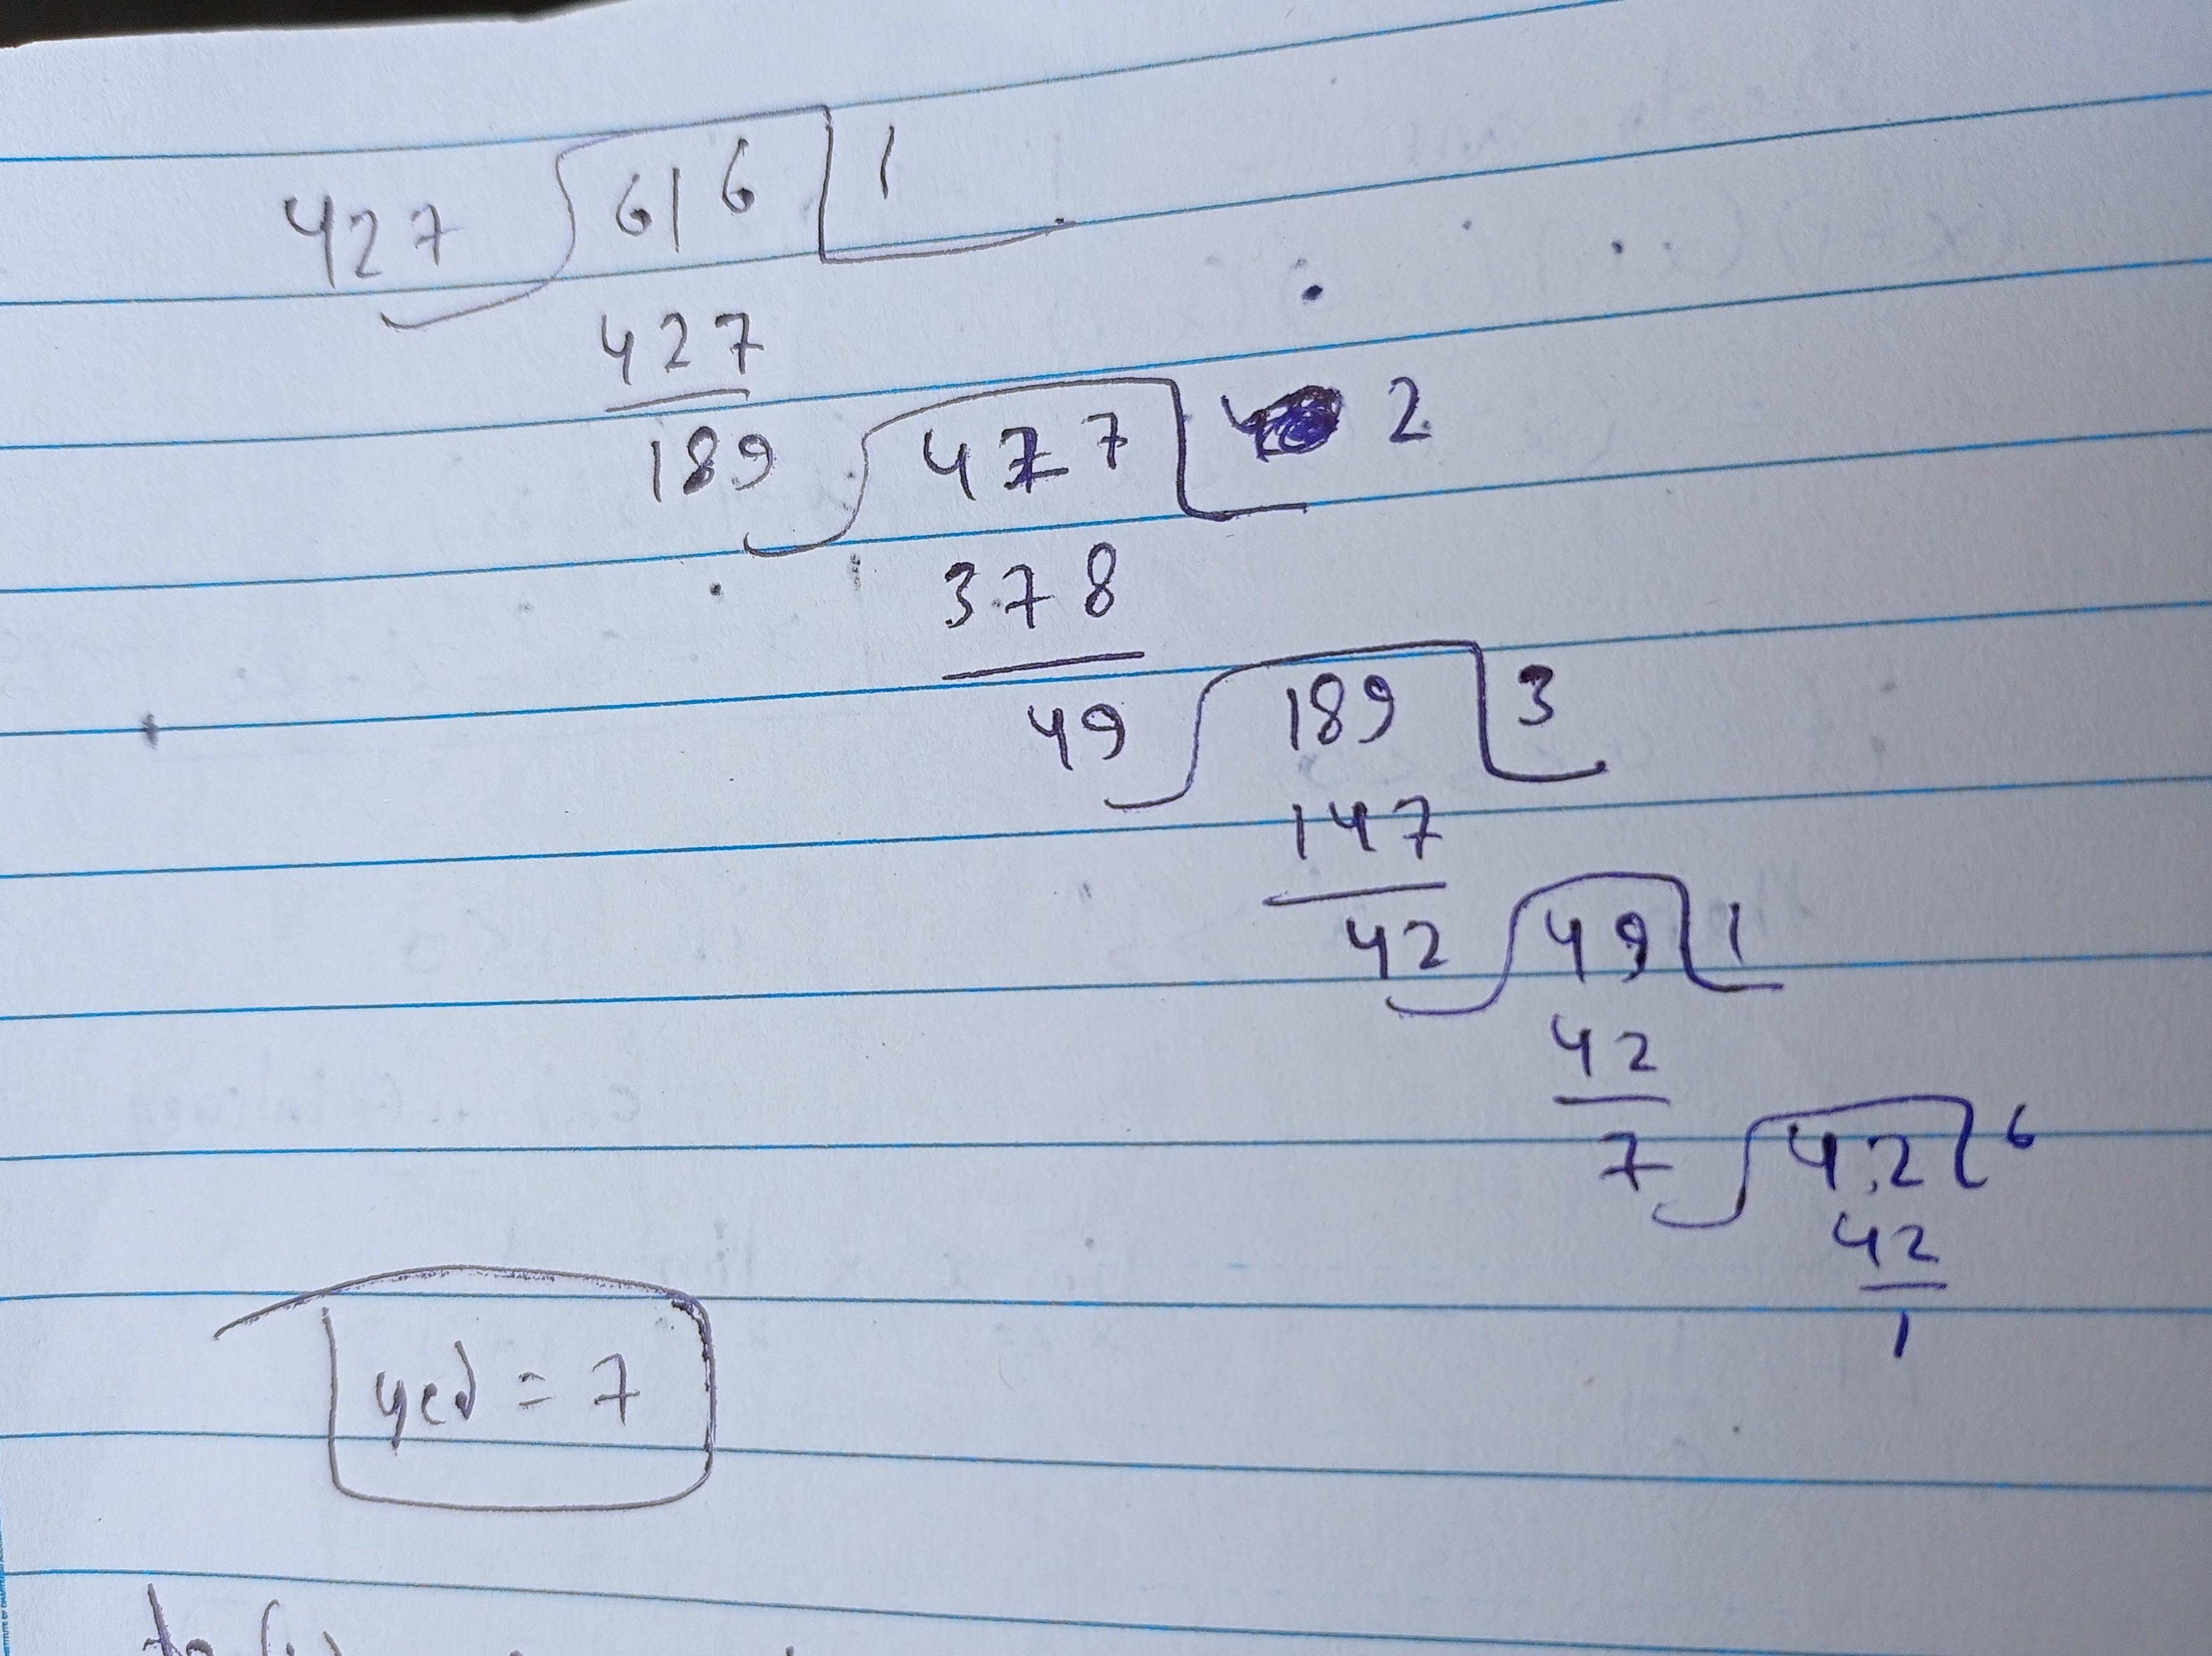 427 616 1
427
189 427 2
378
49 189 3
147
42 49 1
42
7 42 6
42
1
gcd = 7